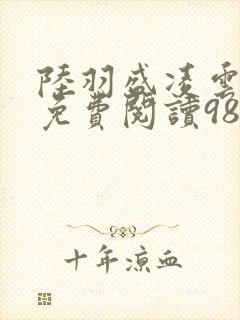 陸羽盛凌雲
免費閱讀98
十年涼血